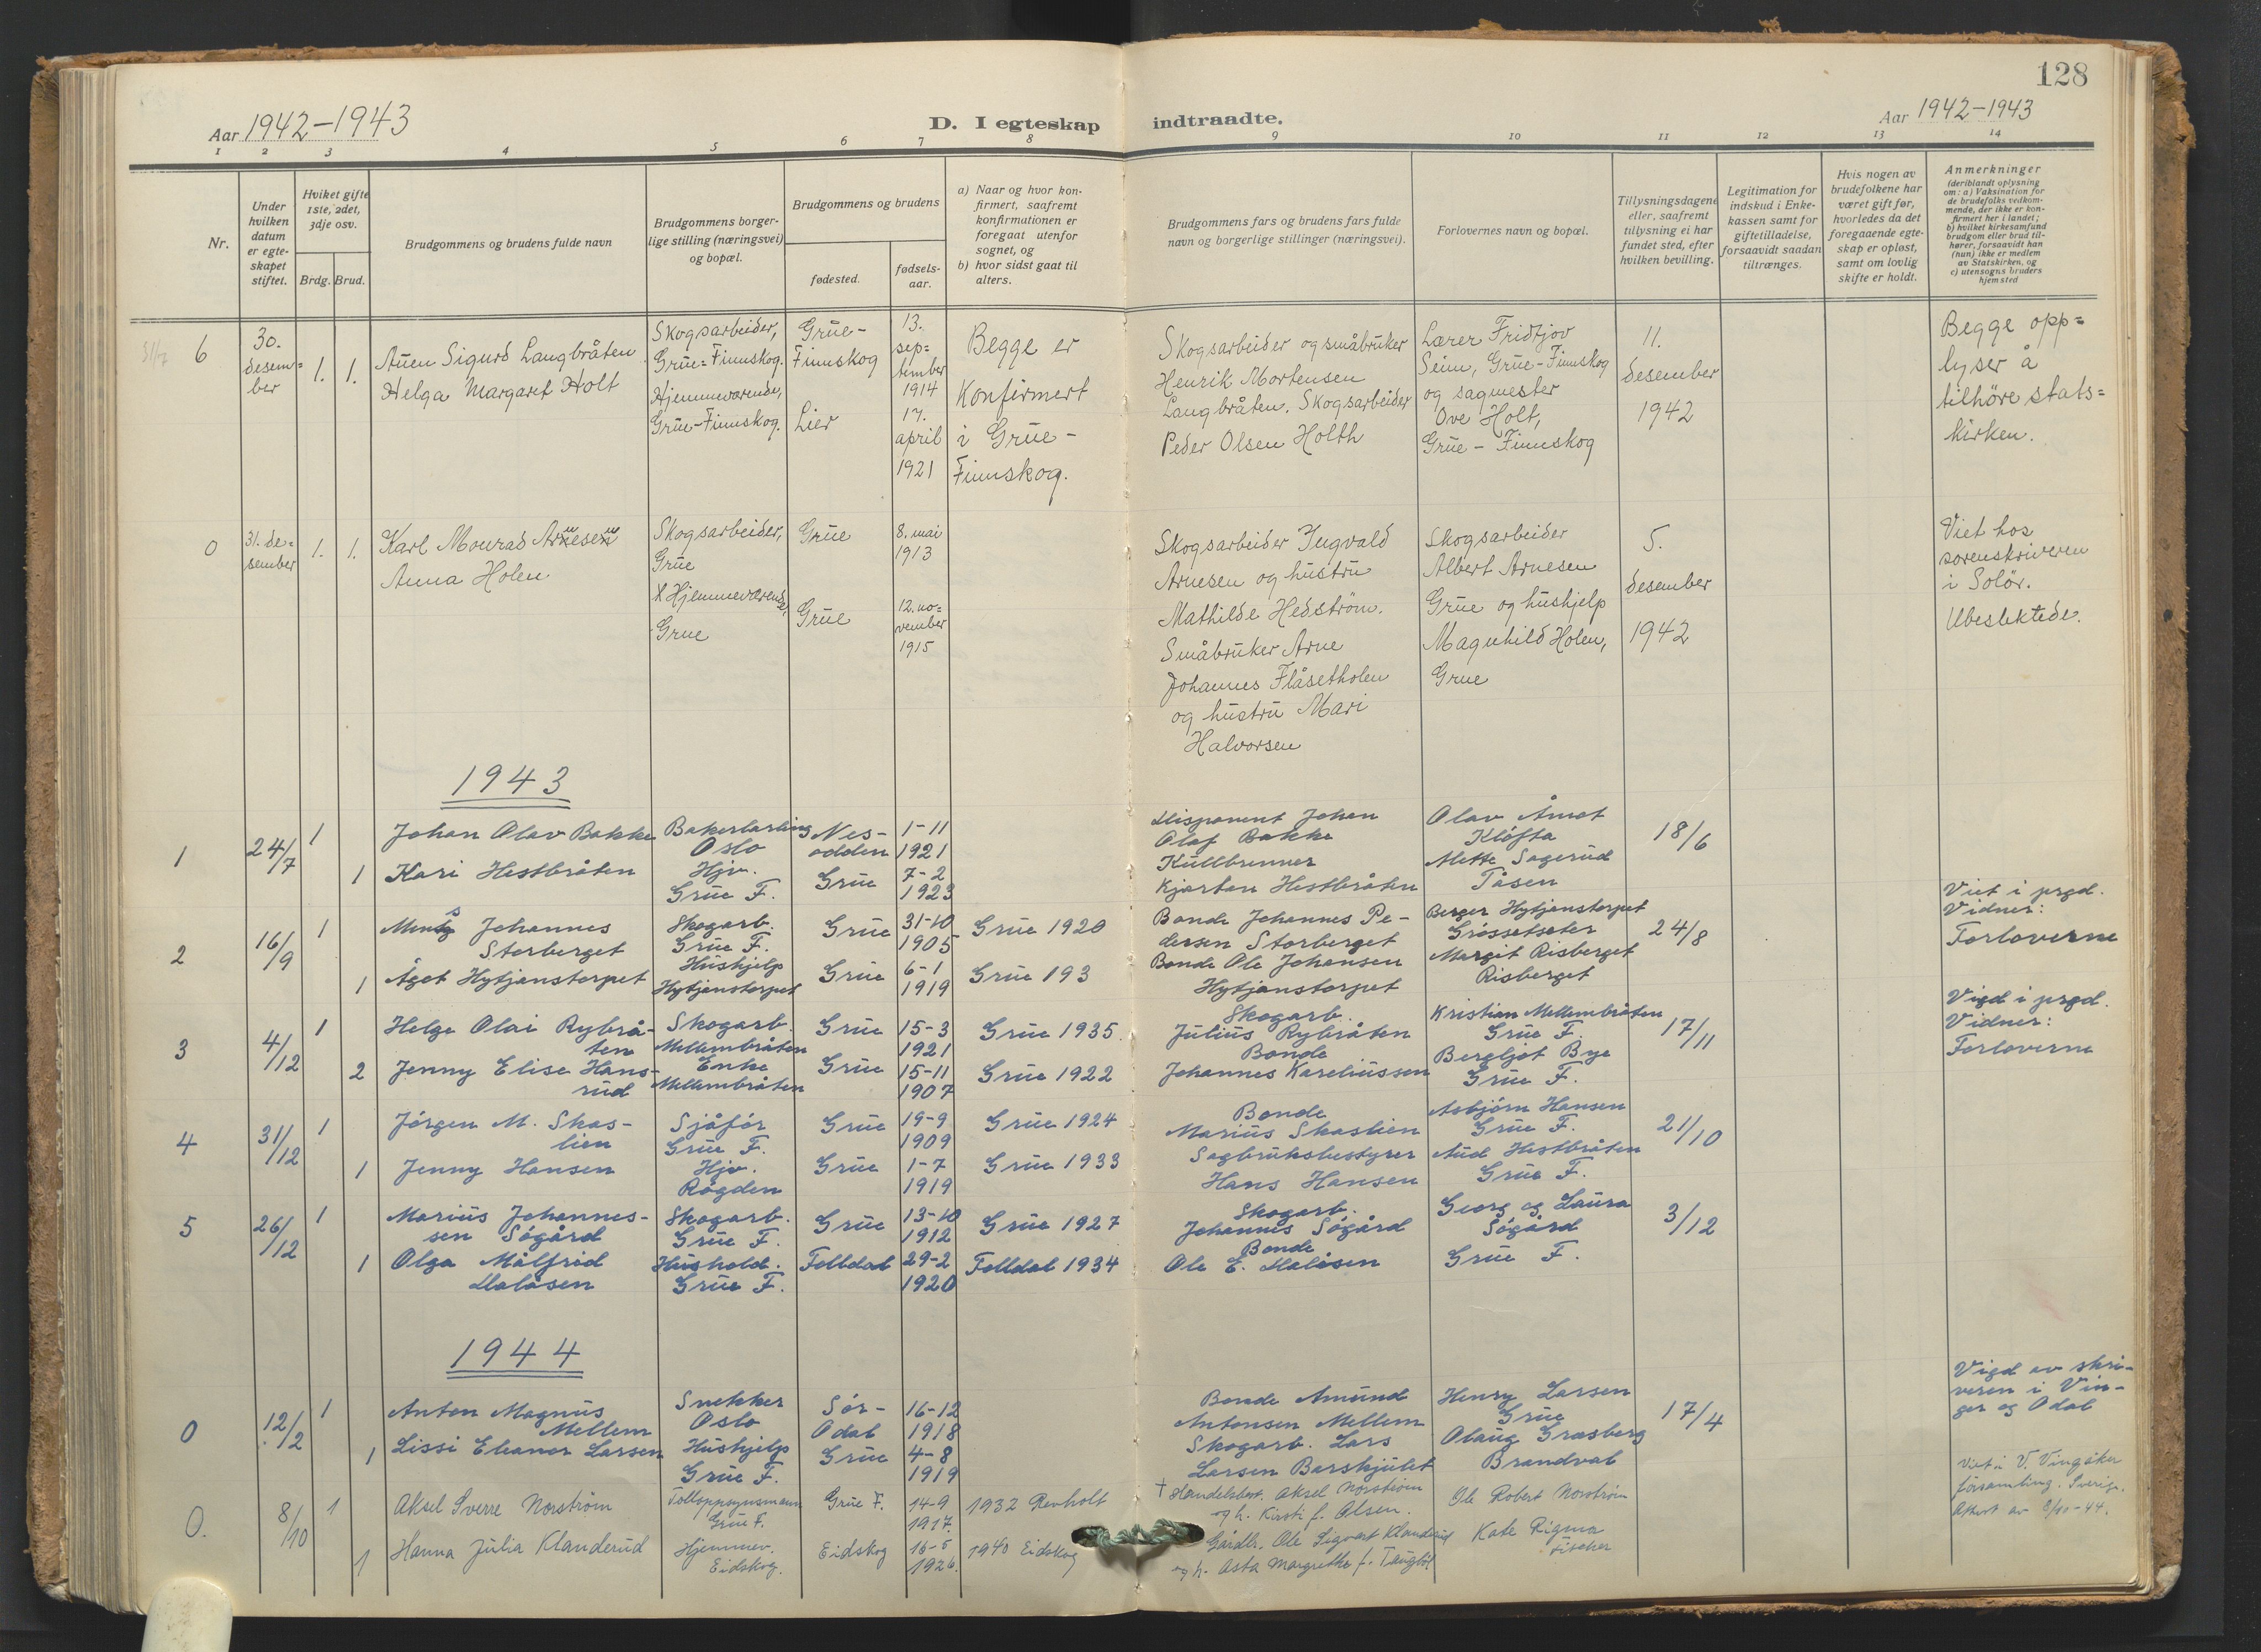 128
Aar 1942-1943
D. I egteskap indtraadte.
Aar 1942-1943
1 2 3 4 5 6 7 8 9 10 11 12 13 14
Nr.
Under
hvilken
datum
er egte-
skapet
stiftet.
Hviket gifte
1ste, 2det,
3dje osv.
Brdg. Brud.
Brudgommens og brudens fulde navn
Brudgommens borger-
lige stilling (næringsvei)
og bopæl.
Brudgommens og brudens
fødested.
fødsels-
aar.
a) Naar og hvor kon-
firmert, saafremt
konfirmationen er
foregaat utenfor
sognet, og
b) hvor sidst gaat til
alters.
Brudgommens fars og brudens fars fulde
navn og borgerlige stillinger (næringsvei).
Forlovernes navn og bopæl.
Tillysningsdagene
eller, saafremt
tillysning ei har
fundet sted, efter
hvilken bevilling.
Legitimation for
indskud i Enke-
kassen samt for
giftetilladelse,
forsaavidt saadan
tiltrænges.
Hvis nogen av
brudefolkene har
været gift før,
hvorledes da det
foregaaende egte-
skap er opløst,
samt om lovlig
skifte er holdt.
Anmerkninger
(deriblandt oplysning
om: a) Vaksination for
de brudefolks vedkom-
mende, der ikke er kon-
firmert her i landet;
b) hvilket kirkesamfund
brudgom eller brud til-
hører, forsaavidt han
(hun) ikke er medlem
av Statskirken, og
c) utensogns bruders
hjemsted
6
30.
desem=
ber
1. 1.
Auen Sigurd Langbråten
Helga Margaret Holt
Skogsarbeider,
Grue=Finnskog.
Hjemmeværende,
Grue-Finnskog.
Grue-
Finnskog
Lier
13.
sep=
tember
1914
17.
april
1921
Begge er
Konfirmert
i Grue-
Finnskog.
Skogsarbeider og småbruker
Henrik Mortensen
Langbråten. Skogsarbeider
Peder Olsen Holth
Lærer Fridtjov
Seim, Grue-Finnskog
og sagmester
Ove Holt,
Grue - Finnskog
11.
desember
1942
Begge opp=
lyser å
tilhöre stats=
kirken.
0
31. de=
sember
1. 1.
Karl Monrad Arnesen
Anna Holen
Skogsarbeider,
Grue
X Hjemmeværende,
Grue
Grue
Grue
8. mai
1913
12. no=
vember
1915
Skogsarbeider Ingvald
Arnesen og hustru
Mathilde Hedström.
Småbruker Arne
Johannes Flåsetholen
og hustru Mari
Halvorsen
Skogsarbeider
Albert Arnesen
Grue og hushjelp
Magnhild Holen,
Grue
5.
desember
1942
Viet hos
sorenskriveren
i Solör.
Ubeslektede.
1943
1
24/7
1
1
Johan Olav Bakke
Kari Hestbråten
Bakerlærling
Oslo
Hjv.
Grue F.
Nes-
odden
Grue
1-11
1921
7-2
1923
Disponent Johan
Olaf Bakke
Kullbrenner
Kjartan Hestbråten
Olav Åmot
Kløfta
Mette Sagerud
Tåsen
18/6
2
16/9
1
1
Johannes
Storberget
Åget Hytjanstorpet
Skogarb.
Grue F.
Hushjelp
Hytjanstorpet
Grue
Grue
31-10
1905
6-1
1919
Grue 1920
Grue 193
Bonde Johannes Pe-
dersen Storberget
Bonde Ole Johansen
Hytjanstorpet
Berger Hytjanstorpet
Grøssetseter
Margit Risberget
Risberget
24/8
Viet i prgd.
Vidner:
Forloverne
3
4/12
1
2
Helge Olai Rybrå-
ten
Jenny Elise Hans-
rud
Skogarb.
Mellembråten
Enke
Mellembråten
Grue
Grue
15-3
1921
15-11
1907
Grue 1935.
Grue 1922
Skogarb.
Julius Rybråten
Bonde
Johannes Kareliussen
Kristian Mellembråten
Grue F.
Bergljot Bye
Grue F.
17/11
Vigd i prgd.
Vidner:
Forloverne
4
31/12
1
1
Jørgen M. Skas-
lien
Jenny Hansen
Sjåfør
Grue F.
Hjv.
Røgden
Grue
Grue
19-9
1909
1-7
1919
Grue 1924
Grue 1933
Bonde
Marius Skaslien
Sagbruksbestyrer
Hans Hansen
Asbjørn Hansen
Grue F.
Aud Hestbråten
Grue F.
21/10
5
26/12
1
1
Marius Johannes-
sen Søgård
Olga Målfrid
Daløsen
Skogarb.
Grue F.
Hushold.
Grue F.
Grue
Folldal
13-10
1912
29-2
1920
Grue 1927
Folldal 1934
Skogarb.
Johannes Søgård
Bonde
Ole E. Daløsen
Georg og Laura
Søgård
Grue F.
3/12
1944
0
12/2
1
1
Anton Magnus
Mellem
Lissi Eleanor Larsen
Snekker
Oslo
Hushjelp
Grue F.
Sør-
Odal
Grue
16-12
1918
4-8
1919
Bonde Amund
Antonsen Mellem
Skogarb. Lars
Larsen Barskjulet
Henry Larsen
Grue
Olaug Græsberg
Brandval
17/4
Vigd av skri-
veren i Vin-
ger og Odal
0.
8/10
1
1
Aksel Sverre Norström
Hanna Julia Klanderud
Tolloppsynsmann
Grue F.
Hjemmev.
Eidskog.
Grue F.
Eidskog
14-9
1917.
16-5
1926.
1932 Revholt
1940 Eidskog
† Handelsbest. Aksel Norström
og h. Kirsti f. Olsen.
Gårdbr. Ole Sigvart Klanderud
og h. Asta Margrethe f. Tangløl
Ole Robert Norström
Kate Rigmor
Fischer
Viet i V. Vingåker
församling. Sverige.
Attest av 8/10-44.